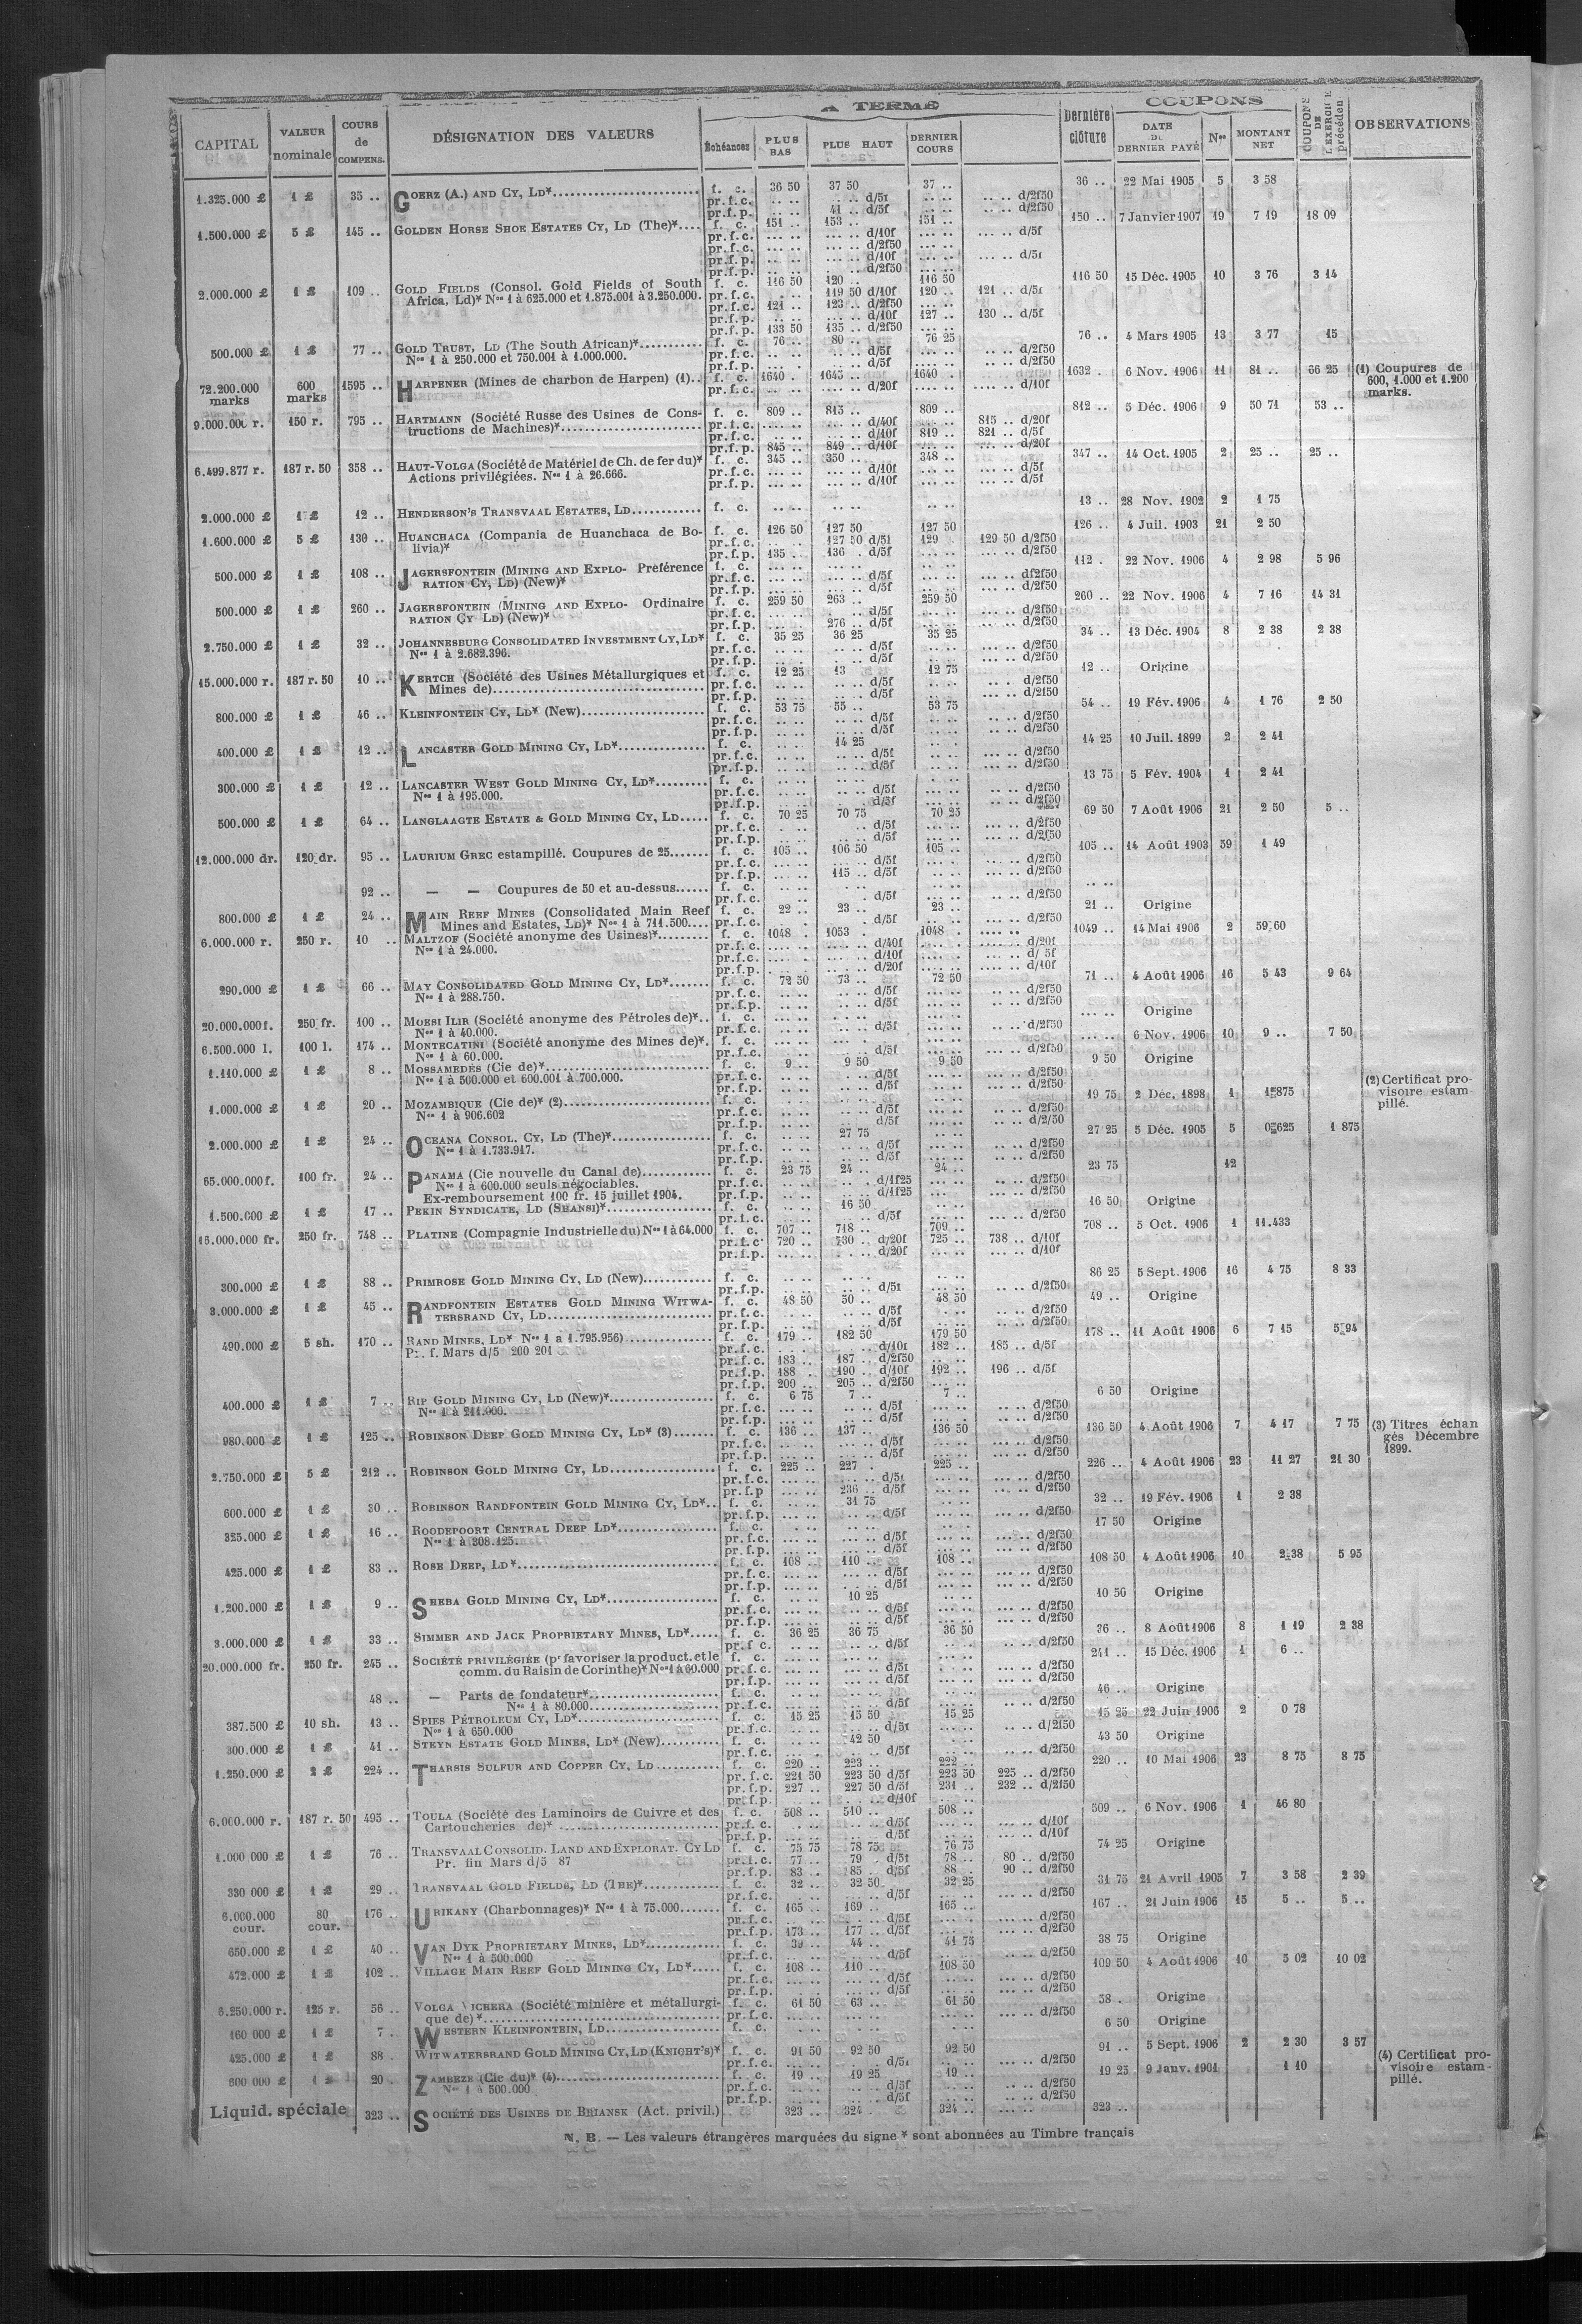 A TERME
COUPONS
CAPITAL VALEUR nominale COURS de COMPENS. DÉSIGNATION DES VALEURS Échéances PLUS BAS PLUS HAUT DERNIER COURS Dernière clôture DATE DU DERNIER PAYÉ Nos MONTANT NET COUPONS DE L'EXERCICE précédent OBSERVATIONS
1.325.000 £ 1 £ 35 .. GOERZ (A.) AND CY, LD* f. c. 36 50 37 50 37 .. 36 .. 22 Mai 1905 5 3 58
pr.f.c. .. .. .. .. d/5f .. .. .. .. d/2f50
pr.f.p. .. .. 41 .. d/5f .. .. .. .. d/2f50
1.500.000 £ 5 £ 145 .. GOLDEN HORSE SHOE ESTATES CY, LD (The)* f. c. 151 .. 153 .. 151 .. 150 .. 7 Janvier 1907 19 7 19 18 09
pr.f.c. d/10f d/5f
pr.f.c. d/2f50
pr.f.p. d/10f d/5f
pr.f.p. d/2f50
2.000.000 £ 1 £ 109 .. GOLD FIELDS (Consol. Gold Fields of South f. c. 116 50 120 .. 116 50 116 50 15 Déc. 1905 10 3 76 3 14
Africa, Ld)* Nos 1 à 625.000 et 1.875.001 à 3.250.000. pr.f.c. 119 50 d/10f 120 .. 121 .. d/5f
pr.f.c. 121 .. 123 .. d/2f50
pr.f.p. d/10f 127 .. 130 .. d/5f
pr.f.p. 133 50 135 .. d/2f50
500.000 £ 1 £ 77 .. GOLD TRUST, LD (The South African)* f. c. 76 .. 80 .. 76 25 76 .. 4 Mars 1905 13 3 77 15
Nos 1 à 250.000 et 750.001 à 1.000.000. pr.f.c. d/5f d/2f50
pr.f.p. d/5f d/2f50
72.200.000 marks 600 marks 1595 .. HARPENER (Mines de charbon de Harpen) (1).. f. c. 1640 . 1645 .. 1640 . 1632 . 6 Nov. 1906 11 81 .. 66 25 (1) Coupures de 600, 1.000 et 1.200 marks.
pr.f.c. d/20f d/10f
9.000.000 r. 150 r. 795 .. HARTMANN (Société Russe des Usines de Cons- f. c. 809 .. 815 .. 809 .. 812 .. 5 Déc. 1906 9 50 71 53 ..
tructions de Machines)* pr.f.c. d/40f 815 .. d/20f
pr.f.c. d/10f 819 .. 821 .. d/5f
pr.f.p. 845 .. 849 .. d/10f d/20f
6.499.877 r. 187 r. 50 358 .. HAUT-VOLGA (Société de Matériel de Ch. de fer du)* f. c. 345 .. 350 .. 348 .. 347 .. 14 Oct. 1905 2 25 .. 25 ..
Actions privilégiées. Nos 1 à 26.666. pr.f.c. d/10f d/5f
pr.f.p. d/10f d/5f
2.000.000 £ 1 £ 12 .. HENDERSON'S TRANSVAAL ESTATES, LD f. c. 13 .. 28 Nov. 1902 2 1 75
1.600.000 £ 5 £ 130 .. HUANCHACA (Compania de Huanchaca de Bo- f. c. 126 50 127 50 127 50 126 .. 4 Juil. 1903 21 2 50
livia)* pr.f.c. 127 50 d/5f 129 129 50 d/2f50
pr.f.p. 135 .. 136 . d/5f d/2f50
500.000 £ 1 £ 108 .. JAGERSFONTEIN (MINING AND EXPLO- Préférence f. c. 112 . 22 Nov. 1906 4 2 98 5 96
RATION CY, LD) (New)* pr.f.c. d/5f d/2f50
pr.f.p. d/5f d/2f50
500.000 £ 1 £ 260 .. JAGERSFONTEIN (MINING AND EXPLO- Ordinaire f. c. 259 50 263 .. 259 50 260 .. 22 Nov. 1906 4 7 16 14 31
RATION CY LD) (New)* pr.f.c. d/5f d/2f50
pr.f.p. 276 .. d/5f d/2f50
2.750.000 £ 1 £ 32 .. JOHANNESBURG CONSOLIDATED INVESTMENT CY, LD* f. c. 35 25 36 25 35 25 34 .. 13 Déc. 1904 8 2 38 2 38
Nos 1 à 2.682.396. pr.f.c. d/5f d/2f50
pr.f.p. d/5f d/2f50
15.000.000 r. 187 r. 50 10 .. KERTCH (Société des Usines Métallurgiques et f. c. 12 25 13 12 75 12 .. Origine
Mines de) pr.f.c. d/5f d/2f50
pr.f.p. d/5f d/2f50
800.000 £ 1 £ 46 .. KLEINFONTEIN CY, LD* (New) f. c. 53 75 55 .. 53 75 54 .. 19 Fév. 1906 4 1 76 2 50
pr.f.c. d/5f d/2f50
pr.f.p. d/5f d/2f50
400.000 £ 1 £ 12 .. LANCASTER GOLD MINING CY, LD* f. c. 14 25 14 25 10 Juil. 1899 2 2 41
pr.f.c. d/5f d/2f50
pr.f.p. d/5f d/2f50
300.000 £ 1 £ 12 .. LANCASTER WEST GOLD MINING CY, LD* f. c. 13 75 5 Fév. 1904 1 2 41
Nos 1 à 195.000. pr.f.c. d/5f d/2f50
pr.f.p. d/5f d/2f50
500.000 £ 1 £ 64 .. LANGLAAGTE ESTATE & GOLD MINING CY, LD f. c. 70 25 70 75 70 25 69 50 7 Août 1906 21 2 50 5 ..
pr.f.c. d/5f d/2f50
pr.f.p. d/5f d/2f50
12.000.000 dr. 120 dr. 95 .. LAURIUM GREC estampillé. Coupures de 25 f. c. 105 .. 106 50 105 .. 105 .. 14 Août 1903 59 1 49
pr.f.c. d/5f d/2f50
pr.f.p. 115 .. d/5f d/2f50
92 .. — — Coupures de 50 et au-dessus f. c.
pr.f.c. d/5f d/2f50
800.000 £ 1 £ 24 .. MAIN REEF MINES (Consolidated Main Reef f. c. 22 .. 23 .. 23 .. 21 .. Origine
Mines and Estates, LD)* Nos 1 à 711.500 pr.f.c. d/5f d/2f50
6.000.000 r. 250 r. 10 .. MALTZOF (Société anonyme des Usines)* f. c. 1048 . 1053 . 1048 . 1049 .. 14 Mai 1906 2 59 60
Nos 1 à 24.000. pr.f.c. d/40f d/20f
pr.f.c. d/10f d/ 5f
pr.f.p. d/20f d/10f
290.000 £ 1 £ 66 .. MAY CONSOLIDATED GOLD MINING CY, LD* f. c. 72 50 73 .. 72 50 71 .. 4 Août 1906 16 5 43 9 64
Nos 1 à 288.750. pr.f.c. d/5f d/2f50
pr.f.p. d/5f d/2f50
20.000.000 f. 250 fr. 100 .. MOESI ILIR (Société anonyme des Pétroles de)* f. c. Origine
Nos 1 à 40.000. pr.f.c. d/5f d/2f50
6.500.000 l. 100 l. 174 .. MONTECATINI (Société anonyme des Mines de)*. f. c. 6 Nov. 1906 10 9 .. 7 50
Nos 1 à 60.000. pr.f.c. d/5f d/2f50
1.110.000 £ 1 £ 8 .. MOSSAMEDÈS (Cie de)* f. c. 9 .. 9 50 9 50 9 50 Origine
Nos 1 à 500.000 et 600.001 à 700.000. pr.f.c. d/5f d/2f50
pr.f.p. d/5f d/2f50
1.000.000 £ 1 £ 20 .. MOZAMBIQUE (Cie de)* (2) f. c. 19 75 2 Déc. 1898 1 1f875 (2) Certificat provisoire estampillé.
Nos 1 à 906.602 pr.f.c. d/5f d/2f50
pr.f.p. d/5f d/2f50
2.000.000 £ 1 £ 24 .. OCEANA CONSOL. CY, LD (The)* f. c. 27 75 27 25 5 Déc. 1905 5 0f625 1 875
Nos 1 à 1.733.917. pr.f.c. d/5f d/2f50
pr.f.p. d/5f d/2f50
65.000.000 f. 100 fr. 24 .. PANAMA (Cie nouvelle du Canal de) f. c. 23 75 24 .. 24 .. 23 75 12
Nos 1 à 600.000 seuls négociables. pr.f.c. d/1f25 d/2f50
Ex-remboursement 100 fr. 15 juillet 1904. pr.f.p. d/1f25 d/2f50
1.500.000 £ 1 £ 17 .. PEKIN SYNDICATE, LD (SHANSI)* f. c. 16 50 16 50 Origine
pr.f.c. d/5f d/2f50
16.000.000 fr. 250 fr. 748 .. PLATINE (Compagnie Industrielle du) Nos 1 à 64.000 f. c. 707 .. 718 .. 709 .. 708 .. 5 Oct. 1906 1 11.433
pr.f.c. 720 .. 730 .. d/20f 725 .. 738 .. d/10f
pr.f.p. d/20f d/10f
300.000 £ 1 £ 88 .. PRIMROSE GOLD MINING CY, LD (New) f. c. 86 25 5 Sept. 1906 16 4 75 8 33
pr.f.p. d/5f d/2f50
3.000.000 £ 1 £ 45 .. RANDFONTEIN ESTATES GOLD MINING WITWA- f. c. 48 50 50 .. 48 50 49 .. Origine
TERSRAND CY, LD pr.f.c. d/5f d/2f50
pr.f.p. d/5f d/2f50
490.000 £ 5 sh. 170 .. RAND MINES, LD* Nos 1 à 1.795.956) f. c. 179 .. 182 50 179 50 178 .. 11 Août 1906 6 7 15 5 94
Pr. f. Mars d/5 200 201 pr.f.c. d/10f 182 .. 185 .. d/5f
pr.f.c. 183 .. 187 .. d/2f50
pr.f.p. 188 .. 190 .. d/10f 192 .. 196 .. d/5f
pr.f.p. 200 .. 205 .. d/2f50
400.000 £ 1 £ 7 .. RIP GOLD MINING CY, LD (New)* f. c. 6 75 7 .. 7 .. 6 50 Origine
Nos 1 à 211.000. pr.f.c. d/5f d/2f50
pr.f.p. d/5f d/2f50
980.000 £ 1 £ 125 .. ROBINSON DEEP GOLD MINING CY, LD* (3) f. c. 136 .. 137 .. 136 50 136 50 4 Août 1906 7 4 17 7 75 (3) Titres échangés Décembre 1899.
pr.f.c. d/5f d/2f50
pr.f.p. d/5f d/2f50
2.750.000 £ 5 £ 212 .. ROBINSON GOLD MINING CY, LD f. c. 225 .. 227 . 225 .. 226 .. 4 Août 1906 23 11 27 21 30
pr.f.c. d/5f d/2f50
pr.f.p 236 .. d/5f d/2f50
600.000 £ 1 £ 30 .. ROBINSON RANDFONTEIN GOLD MINING CY, LD* f. c. 31 75 32 .. 19 Fév. 1906 1 2 38
pr.f.p. d/5f d/2f50
325.000 £ 1 £ 16 .. ROODEPOORT CENTRAL DEEP LD* f. c. 17 50 Origine
Nos 1 à 308.125. pr.f.c. d/5f d/2f50
pr.f.p. d/5f d/2f50
425.000 £ 1 £ 83 .. ROSE DEEP, LD* f. c. 108 .. 110 .. 108 .. 108 50 4 Août 1906 10 2 38 5 95
pr.f.c. d/5f d/2f50
pr.f.p. d/5f d/2f50
1.200.000 £ 1 £ 9 .. SHEBA GOLD MINING CY, LD* f. c. 10 25 10 50 Origine
pr.f.c. d/5f d/2f50
pr.f.p. d/5f d/2f50
3.000.000 £ 1 £ 33 .. SIMMER AND JACK PROPRIETARY MINES, LD* f. c. 36 25 36 75 36 50 36 .. 8 Août 1906 8 1 19 2 38
pr.f c. d/5f d/2f50
20.000.000 fr. 250 fr. 245 .. SOCIÉTÉ PRIVILÉGIÉE (pr favoriser la product. et le f. c. 241 .. 15 Déc. 1906 1 6 ..
comm. du Raisin de Corinthe)* Nos 1 à 60.000 pr.f.c. d/5f d/2f50
pr.f.p. d/5f d/2f50
48 .. — Parts de fondateur* f. c. 46 .. Origine
Nos 1 à 80.000 pr.f.c. d/5f d/2f50
387.500 £ 10 sh. 13 .. SPIES PÉTROLEUM CY, LD* f. c. 15 25 15 50 15 25 15 25 22 Juin 1906 2 0 78
Nos 1 à 650.000 pr.f.c. d/5f d/2f50
300.000 £ 1 £ 41 .. STEYN ESTATE GOLD MINES, LD* (New) f. c. 42 50 43 50 Origine
pr.f.c. d/5f d/2f50
1.250.000 £ 2 £ 224 .. THARSIS SULFUR AND COPPER CY, LD f. c. 220 .. 223 .. 222 .. 220 .. 10 Mai 1906 23 8 75 8 75
pr. f. c. 221 50 223 50 d/5f 223 50 225 .. d/2f50
pr.f.p. 227 .. 227 50 d/5f 231 .. 232 .. d/2f50
pr.f.p. d/10f
6.000.000 r. 187 r. 50 495 .. TOULA (Société des Laminoirs de Cuivre et des f. c. 508 .. 510 .. 508 .. 509 .. 6 Nov. 1906 1 46 80
Cartoucheries de)* pr.f. c. d/5f d/10f
pr.f.p. d/5f d/10f
1.000 000 £ 1 £ 76 .. TRANSVAAL CONSOLID. LAND AND EXPLORAT. CY LD f. c. 75 75 78 75 76 75 74 25 Origine
Pr. fin Mars d/5 87 pr.f.c. 77 .. 79 . d/5f 78 .. 80 .. d/2f50
pr.f.p. 83 .. 85 . d/5f 88 .. 90 .. d/2f50
330 000 £ 1 £ 29 .. TRANSVAAL GOLD FIELDS, LD (THE)* f. c. 32 .. 32 50 32 25 31 75 21 Avril 1905 7 3 58 2 39
pr.f.c. d/5f d/2f50
6.000.000 cour. 80 cour. 176 .. URIKANY (Charbonnages)* Nos 1 à 75.000 f. c. 165 .. 169 .. 165 .. 167 .. 21 Juin 1906 15 5 .. 5 ..
pr.f.c. d/5f d/2f50
pr.f.p. 173 .. 177 .. d/5f d/2f50
650.000 £ 1 £ 40 .. VAN DYK PROPRIETARY MINES, LD* f. c. 39 .. 44 .. 41 75 38 75 Origine
Nos 1 à 500.000 pr.f.c. d/5f d/2f50
472.000 £ 1 £ 102 . VILLAGE MAIN REEF GOLD MINING CY, LD* f. c. 108 .. 110 .. 108 50 109 50 4 Août 1906 10 5 02 10 02
pr.f.c. d/5f d/2f50
pr.f.p. d/5f d/2f50
6.250.000 r. 125 r. 56 .. VOLGA VICHERA (Société minière et métallurgi- f. c. 61 50 63 .. 61 50 58 . Origine
que de)* pr.f.c. d/2f50
160 000 £ 1 £ 7 . WESTERN KLEINFONTEIN, LD f. c. 6 50 Origine
425.000 £ 1 £ 88 . WITWATERSRAND GOLD MINING CY, LD (KNIGHT'S)* f. c. 91 50 92 50 92 50 91 .. 5 Sept. 1906 2 2 30 3 57
pr.f.c. d/5f d/2f50
600 000 £ 1 £ 20 . ZAMBEZE (Cie du)* (4) f. c. 19 .. 19 25 19 .. 19 25 9 Janv. 1901 1 10 (4) Certificat provisoire estampillé.
Nos 1 à 500.000 pr.f.c. d/5f d/2f50
pr.f.p. d/5f d/2f50
Liquid. spéciale 323 .. SOCIÉTÉ DES USINES DE BRIANSK (Act. privil.) 323 .. 324 . 324 .. 323 ..
N. B. — Les valeurs étrangères marquées du signe * sont abonnées au Timbre français